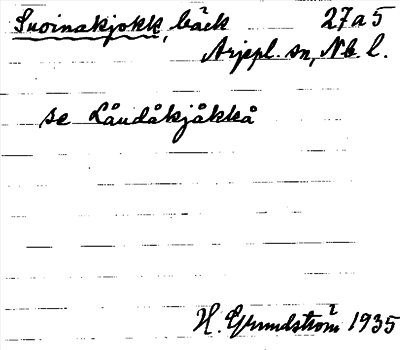 Suoinakjokk, bäck 27a5
Arjepl. sn, Nb. l.
se Låudåkjåkkå
H. Grundström 1935